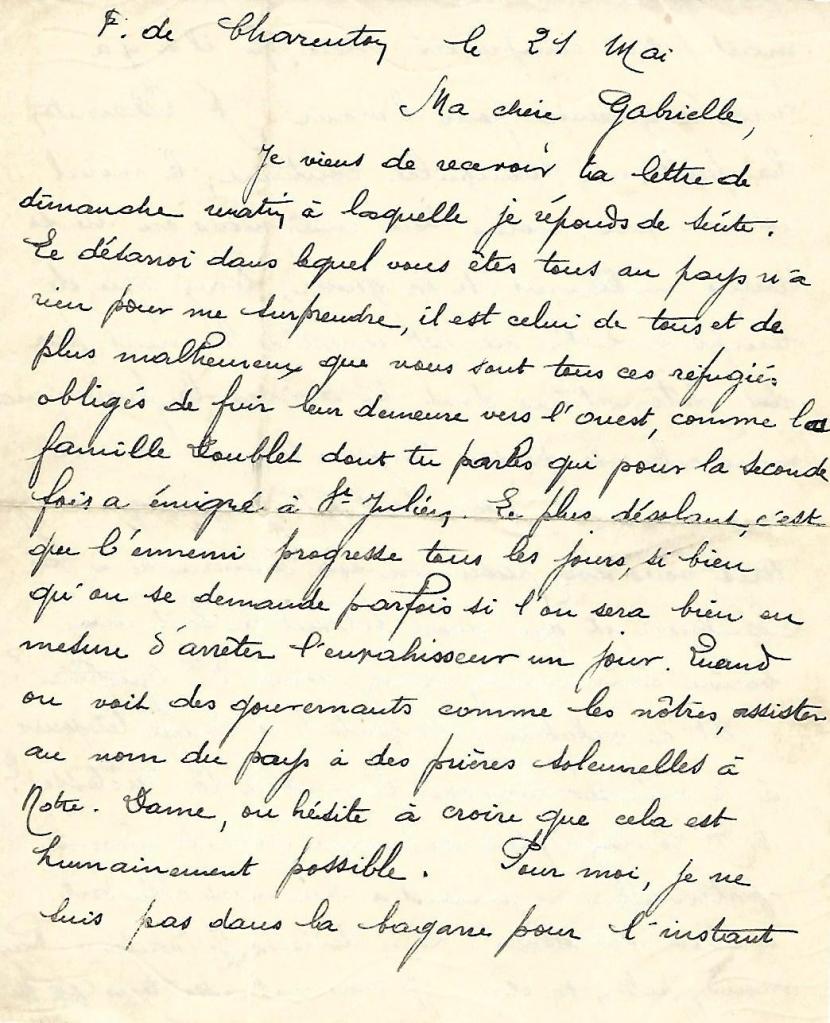 F. de Charenton le 21 Mai
Ma chère Gabrielle,
Je viens de recevoir ta lettre de
dimanche matin à laquelle je réponds de suite.
Le désarroi dans lequel vous êtes tous au pays n'a
rien pour me surprendre, il est celui de tous et de
plus malheureux que vous sont tous ces réfugiés
obligés de fuir leur demeure vers l'ouest, comme la
famille Doublet dont tu parles qui pour la seconde
fois a émigré à St Julien. Le plus désolant, c'est
que l'ennemi progresse tous les jours, si bien
qu'on se demande parfois si l'on sera bien en
mesure d'arrêter l'envahisseur un jour. Quand
on voit des gouvernants comme les nôtres, assister
au nom du pays à des prières solennelles à
Notre-Dame, on hésite à croire que cela est
humainement possible. Pour moi, je ne
suis pas dans la bagarre pour l'instant